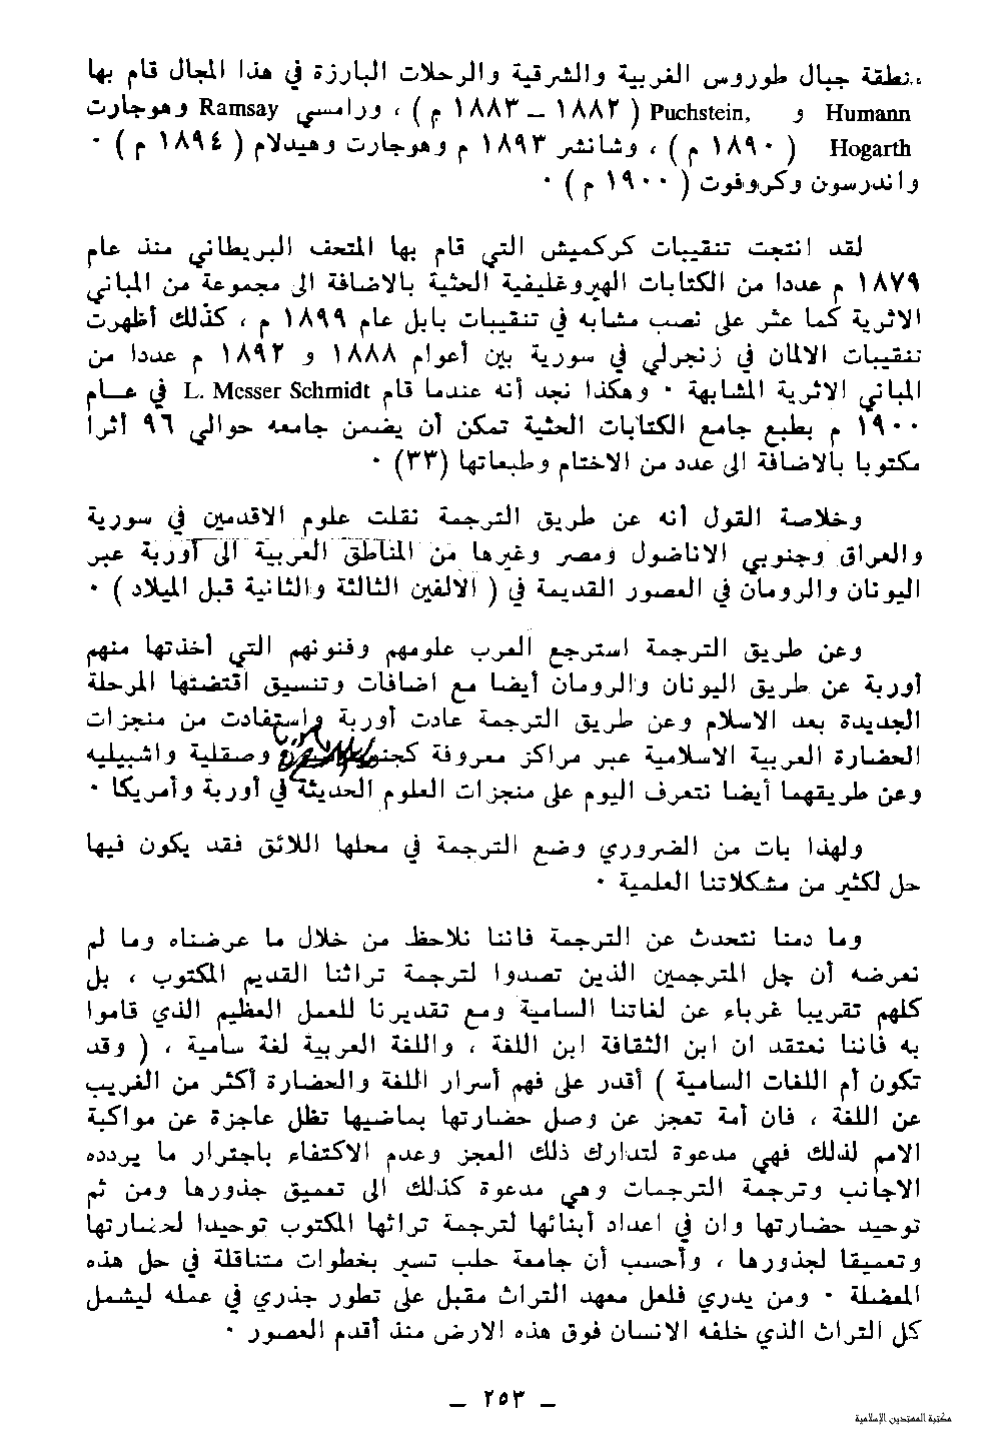 منطقة جبال طوروس الغربية والشرقية والرحلات البارزة في هذا المجال قام بها
Humann و Puchstein, ( ١٨٨٢ – ١٨٨٣ م ) ، ورامسي Ramsay وهوجارت
Hogarth ( ١٨٩٠ م ) ، وشانثر ١٨٩٣ م وهوجارت وهيدلام ( ١٨٩٤ م ) ٠
واندرسون وكروفوت ( ١٩٠٠ م ) ٠
لقد انتجت تنقيبات كركميش التي قام بها المتحف البريطاني منذ عام
١٨٧٩ م عددا من الكتابات الهيروغليفية الحثية بالاضافة الى مجموعة من المباني
الاثرية كما عثر على نصب مشابه في تنقيبات بابل عام ١٨٩٩ م ، كذلك أظهرت
تنقيبات الالمان في زنجرلي في سورية بين أعوام ١٨٨٨ و ١٨٩٢ م عددا من
المباني الاثرية المشابهة ٠ وهكذا نجد أنه عندما قام L. Messer Schmidt في عـام
١٩٠٠ م بطبع جامع الكتابات الحثية تمكن أن يضمن جامعه حوالي ٩٦ أثرا
مكتوبا بالاضافة الى عدد من الاختام وطبعاتها (٣٣) ٠
وخلاصة القول أنه عن طريق الترجمة نقلت علوم الاقدمين في سورية
والعراق وجنوبي الاناضول ومصر وغيرها من المناطق العربية الى أوربة عبر
اليونان والرومان في العصور القديمة في ( الالفين الثالثة والثانية قبل الميلاد ) ٠
وعن طريق الترجمة استرجع العرب علومهم وفنونهم التي أخذتها منهم
أوربة عن طريق اليونان والرومان أيضا مع اضافات وتنسيق اقتضتها المرحلة
الجديدة بعد الاسلام وعن طريق الترجمة عادت أوربة واستفادت من منجزات
الحضارة العربية الاسلامية عبر مراكز معروفة وصقلية واشبيليه
وعن طريقهما أيضا نتعرف اليوم على منجزات العلوم الحديثة في أوربة وأمريكا ٠
ولهذا بات من الضروري وضع الترجمة في محلها اللائق فقد يكون فيها
حل لكثير من مشكلاتنا العلمية ٠
وما دمنا نتحدث عن الترجمة فاننا نلاحظ من خلال ما عرضناه وما لم
نعرضه أن جل المترجمين الذين تصدوا لترجمة تراثنا القديم المكتوب ، بل
كلهم تقريبا غرباء عن لغاتنا السامية ومع تقديرنا للعمل العظيم الذي قاموا
به فاننا نعتقد ان ابن الثقافة ابن اللغة ، واللغة العربية لغة سامية ، ( وقد
تكون أم اللغات السامية ) أقدر على فهم أسرار اللغة والحضارة أكثر من الغريب
عن اللغة ، فان أمة تعجز عن وصل حضارتها بماضيها تظل عاجزة عن مواكبة
الامم لذلك فهي مدعوة لتدارك ذلك العجز وعدم الاكتفاء باجترار ما يردده
الاجانب وترجمة الترجمات وهي مدعوة كذلك الى تعميق جذورها ومن ثم
توحيد حضارتها وان في اعداد أبنائها لترجمة تراثها المكتوب توحيدا لحضارتها
وتعميقا لجذورها ، وأحسب أن جامعة حلب تسير بخطوات متناقلة في حل هذه
المعضلة ٠ ومن يدري فلعل معهد التراث مقبل على تطور جذري في عمله ليشمل
كل التراث الذي خلفه الانسان فوق هذه الارض منذ أقدم العصور ٠
– ٢٥٣ –
مكتبة المهتدين الإسلامية